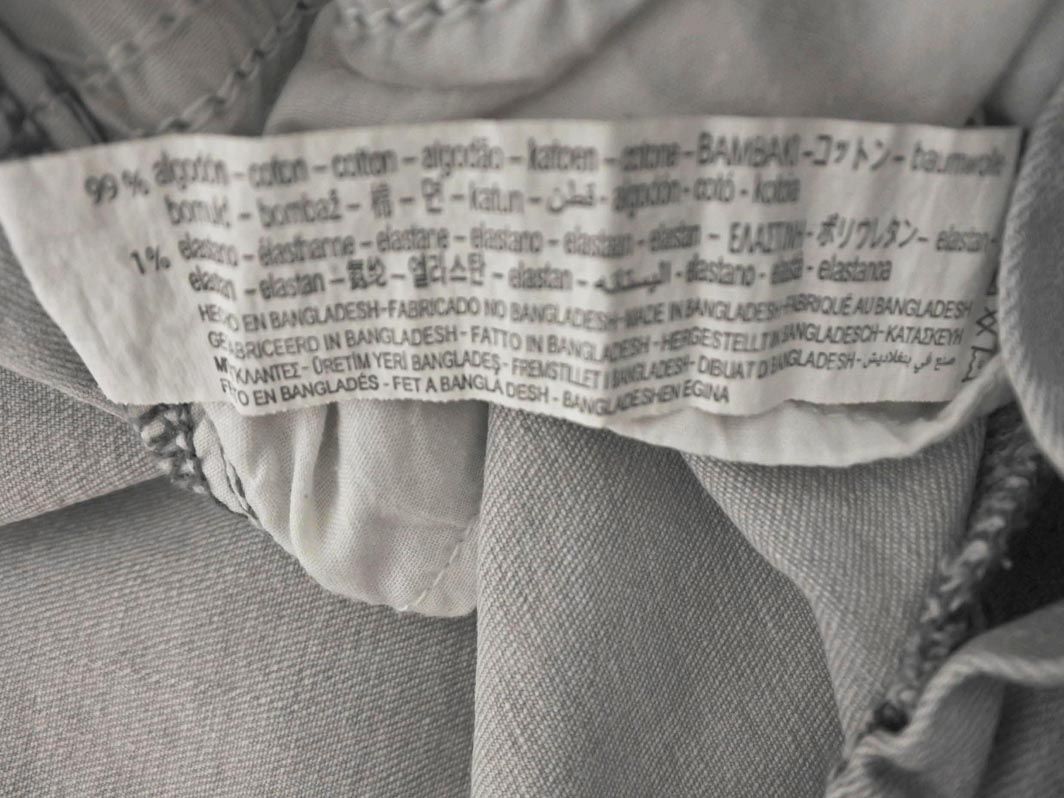 99 % algodón - coton - cotton - algodão - katoen - cotone - ΒΑΜΒΑΚΙ - コットン - baumwolle
bombaž - 棉 - 면 - katun - قطن - algodón - cotó - kotoia
1% elastano - élasthanne - elastane - elastano - elastaan - elastan - ΕΛΑΣΤΙΝΗ - ポリウレタン - elastan -
elastan - elastan - 氨纶 - 엘라스탄 - elastan - elastano - elastà - elastanoa
HECHO EN BANGLADESH-FABRICADO NO BANGLADESH-MADE IN BANGLADESH-FABRIQUÉ AU BANGLADESH
GEFABRICEERD IN BANGLADESH - FATTO IN BANGLADESH - HERGESTELLT IN BANGLADESCH-ΚΑΤΑΣΚΕΥΗ
ΜΠΑΓΚΛΑΝΤΕΣ - ÜRETİM YERİ BANGLADEŞ - FREMSTILLET I BANGLADESH - FABRICAT BANGLADESH - صنع في بنغلاديش
FET EN BANGLADÉS - FET A BANGLA DESH - BANGLADESHEN EGINA